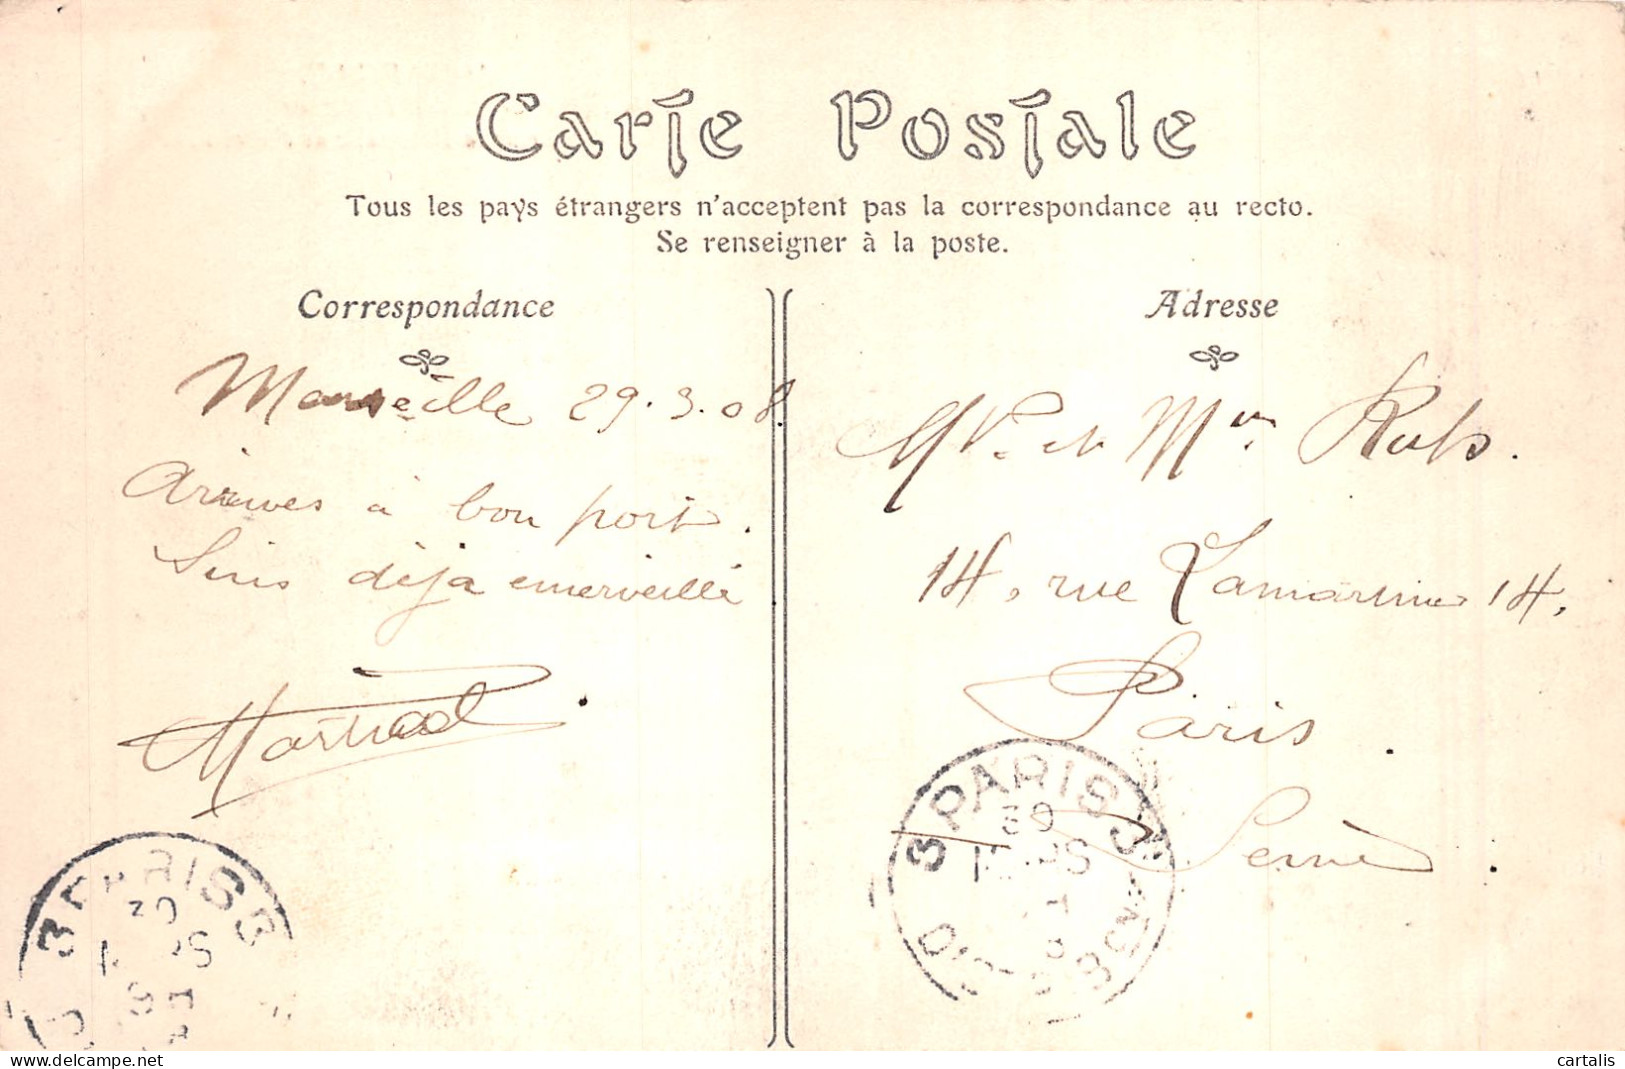 Carte Postale
Tous les pays étrangers n'acceptent pas la correspondance au recto.
Se renseigner à la poste.
Correspondance
Marseille 29.3.08.
Arrives à bon port.
Suis déjà emerveillé
Adresse
Mr. et Mme
14, rue Lamartine 14,
Paris.
Seine
3 PARIS 3
3 PARIS 3
cartalis